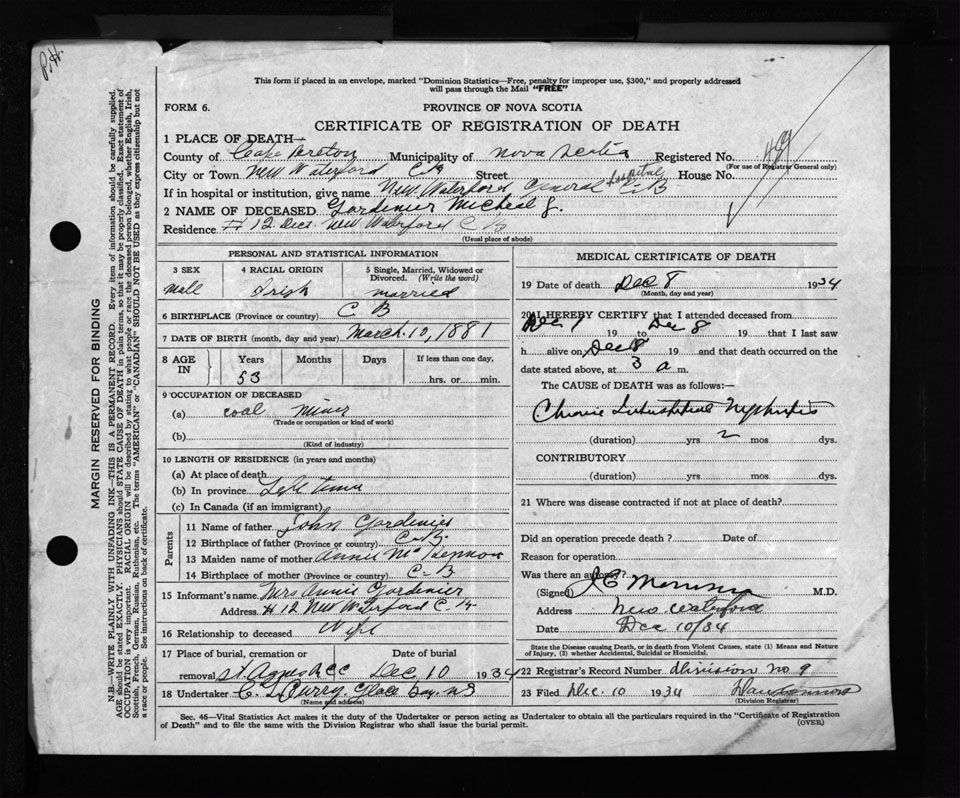 P.H.
This form if placed in an envelope, marked "Dominion Statistics—Free, penalty for improper use, $300," and properly addressed
will pass through the Mail "FREE"
FORM 6.
PROVINCE OF NOVA SCOTIA
CERTIFICATE OF REGISTRATION OF DEATH
1 PLACE OF DEATH—
County of Cape Breton Municipality of Nova Scotia Registered No.
(For use of Registrar General only)
City or Town New Waterford C B Street House No.
If in hospital or institution, give name New Waterford General Hospital C-B
2 NAME OF DECEASED Gardenier Micheal J.
Residence # 12 Dect. New Waterford C B
(Usual place of abode)
PERSONAL AND STATISTICAL INFORMATION
3 SEX 4 RACIAL ORIGIN 5 Single, Married, Widowed or Divorced. (Write the word)
Male Irish married
6 BIRTHPLACE (Province or country) C B
7 DATE OF BIRTH (month, day and year) March. 10, 1881
8 AGE IN Years Months Days If less than one day,
53 hrs. or min.
9 OCCUPATION OF DECEASED
(a) coal miner
(Trade or occupation or kind of work)
(b)
(Kind of industry)
10 LENGTH OF RESIDENCE (in years and months)
(a) At place of death
(b) In province Life time
(c) In Canada (if an immigrant)
Parents
11 Name of father John Gardenier
12 Birthplace of father (Province or country) C-B.
13 Maiden name of mother Annie Mc
14 Birthplace of mother (Province or country) C-B
15 Informant's name Mrs Annie Gardenier
Address # 12 New Waterford C B
16 Relationship to deceased Wife
17 Place of burial, cremation or removal Date of burial
St Agnes RCC Dec 10 1934
18 Undertaker Curry. Glace Bay. NS
(Name and address)
MEDICAL CERTIFICATE OF DEATH
19 Date of death Dec 8 1934
(Month, day and year)
20 I HEREBY CERTIFY that I attended deceased from
Dec 1 19 to Dec 8 19 that I last saw
h alive on Dec 8 19 and that death occurred on the
date stated above, at 3 a m.
The CAUSE of DEATH was as follows:—
Chronic Interstitial Nephritis
(duration) yrs 2 mos. dys.
CONTRIBUTORY
(duration) yrs mos. dys.
21 Where was disease contracted if not at place of death?
Did an operation precede death? Date of
Reason for operation
Was there an autopsy?
(Signed) M.D.
Address New Waterford
Date Dec 10/34
State the Disease causing Death, or in death from Violent Causes, state (1) Means and Nature
of Injury, (2) whether Accidental, Suicidal or Homicidal.
22 Registrar's Record Number division no 9
23 Filed Dec. 10 1934
(Division Registrar)
Sec. 46—Vital Statistics Act makes it the duty of the Undertaker or person acting as Undertaker to obtain all the particulars required in the "Certificate of Registration
of Death" and to file the same with the Division Registrar who shall issue the burial permit.
(OVER)
MARGIN RESERVED FOR BINDING
N.B.—WRITE PLAINLY WITH UNFADING INK—THIS IS A PERMANENT RECORD. Every item of information should be carefully supplied.
AGE should be stated EXACTLY. PHYSICIANS should STATE CAUSE OF DEATH in plain terms, so that it may be properly classified. Exact statement of
OCCUPATION is very important. RACIAL ORIGIN will be described by stating to what people or race the deceased person belonged, whether English, Irish,
Scottish, French, German, Russian, Ruthenian, etc. The terms "AMERICAN" or "CANADIAN" SHOULD NOT BE USED as they express citizenship but not
a race or people. See instructions on back of certificate.